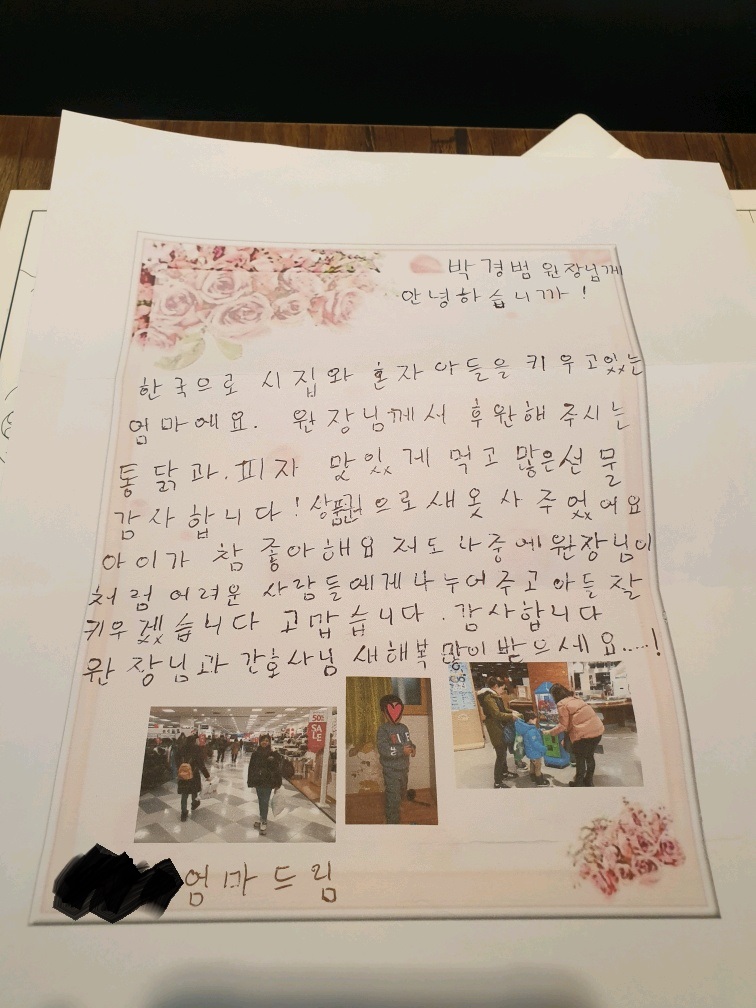 박경범 원장님께
안녕하습니까!
한국으로 시집와 혼자 아들을 키우고있는
엄마에요. 원장님께서 후원해 주시는
통닭과.피자 맛있게 먹고 많은선물
감사합니다! 상품권으로 새옷 사 주었어요
아이가 참 좋아해요 저도 나중에 원장님이
처럼 어려운 사람들에게 나누어 주고 아들 잘
키우겠습니다 고맙습니다. 감사합니다
원장님과 간호사님 새해복 많이 받으세요.....!
50%
SALE
엄마드림